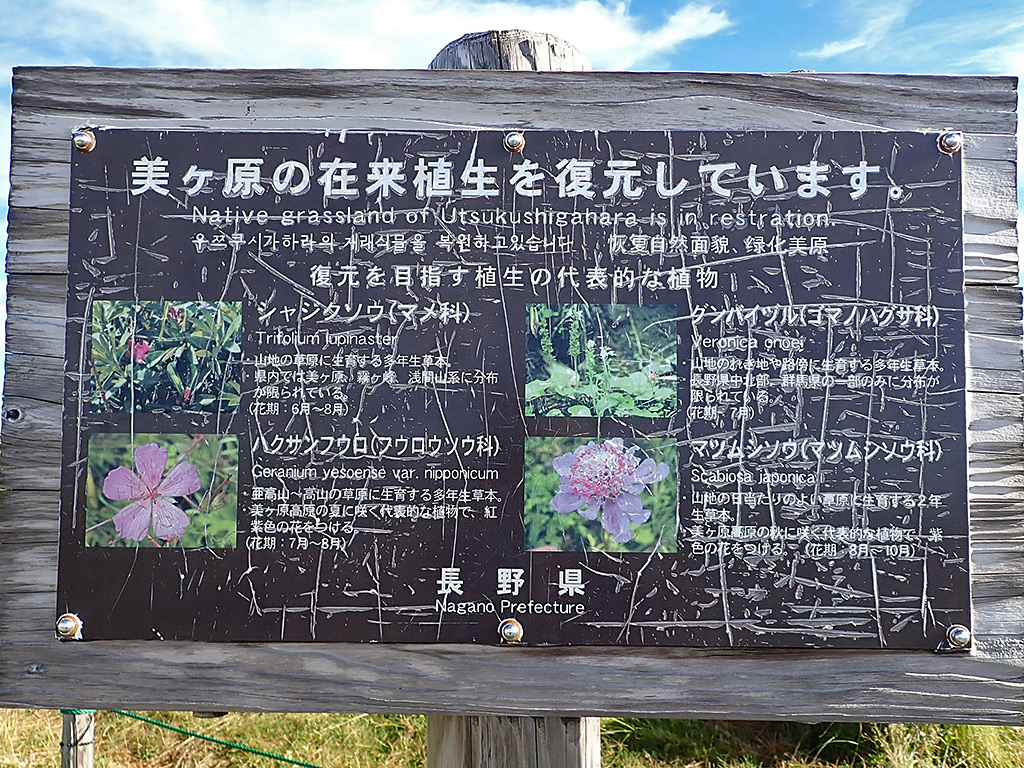 美ヶ原の在来植生を復元しています。
Native grassland of Utsukushigahara is in restration.
우쯔쿠시가하라의 재래식물을 복원하고있습니다. 恢复自然面貌、绿化美原
復元を目指す植生の代表的な植物
シャジクソウ(マメ科)
Trifolium lupinaster
・山地の草原に生育する多年生草本。
・県内では美ヶ原、霧ヶ峰、浅間山系に分布
が限られている。
(花期：6月～8月)
ハクサンフウロ(フウロウソウ科)
Geranium yesoense var. nipponicum
・亜高山～高山の草原に生育する多年生草本。
・美ヶ原高原の夏に咲く代表的な植物で、紅
紫色の花をつける。
(花期：7月～8月)
グンバイヅル(ゴマノハグサ科)
Veronica onoei
・山地のれき地や路傍に生育する多年生草本。
・長野県中北部、群馬県の一部のみに分布が
限られている。
(花期：7月)
マツムシソウ(マツムシソウ科)
Scabiosa japonica
・山地の日当たりのよい草原に生育する2年
生草本。
・美ヶ原高原の秋に咲く代表的な植物で、紫
色の花をつける。 (花期：8月～10月)
長野県
Nagano Prefecture